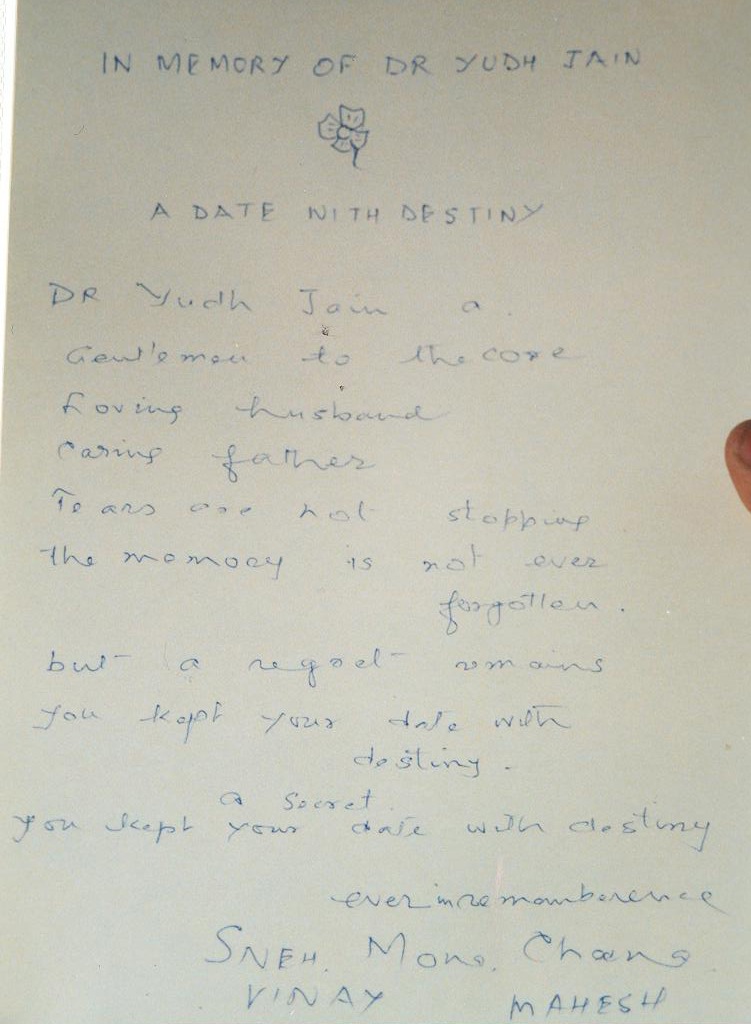 IN MEMORY OF DR YUDH JAIN
A DATE WITH DESTINY
DR Yudh Jain a
Gentlemen to the core
Loving husband
Caring father
Tears are not stopping
the memory is not ever
forgotten.
but a regret remains
you kept your date with
destiny.
a secret
you kept your date with destiny
ever in rememberence
SNEH, Mona,
VINAY MAHESH